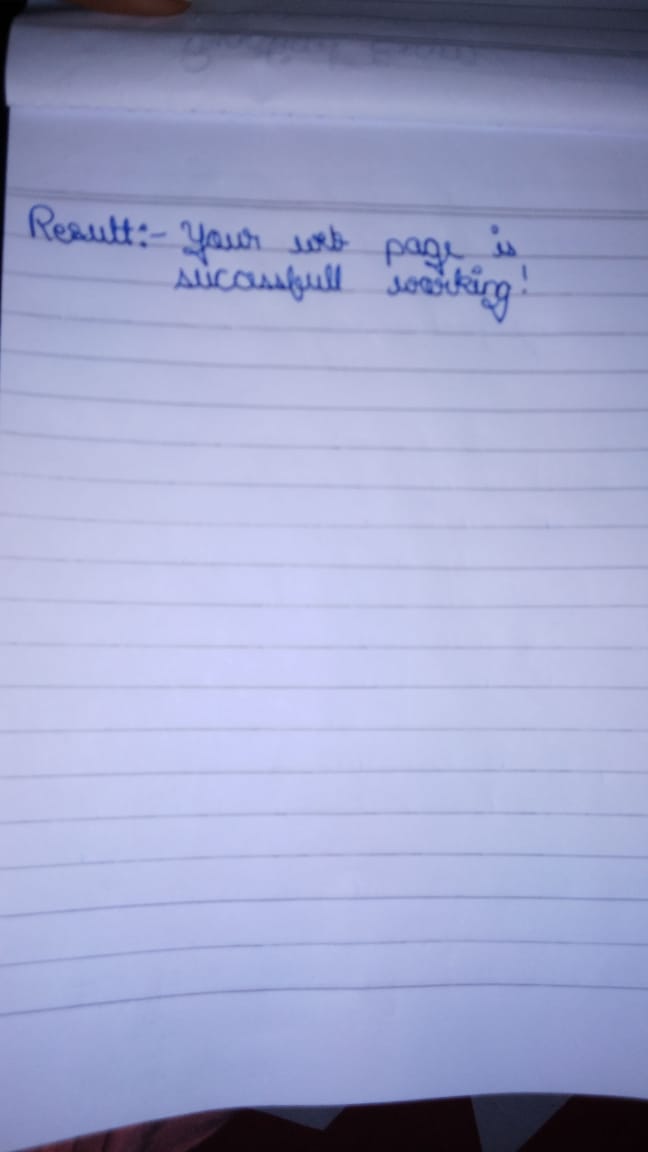 Result:- Your web page is
sucassfull working!